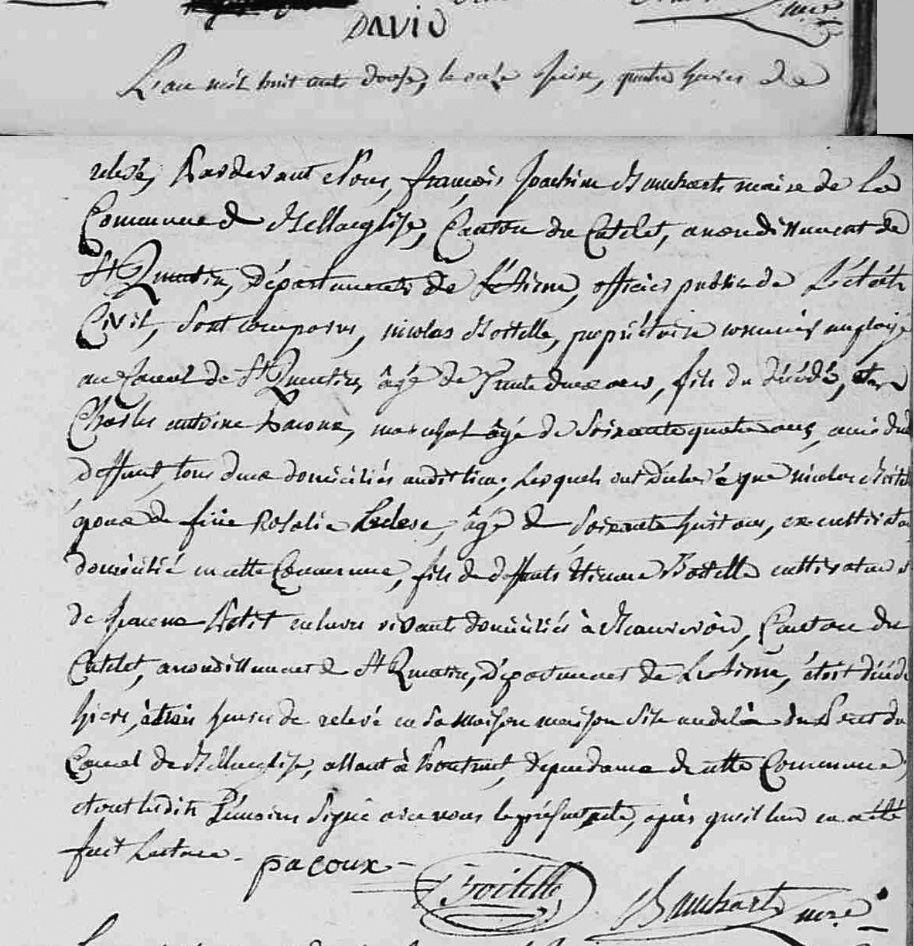 DAVID
L'an mil huit cents douze, le onze juin, quatre heures de
relevé, Pardevant Nous, françois Joachim Bauchart maire de La
Commune de Bellenglise, Canton du Catelet, arrondissement de
St Quentin, département de L'Aisne, officier public de L'état
Civil, sont comparus, nicolas Boitelle, propriétaire employé
au Canal de St Quentin, âgé de Trente deux ans, fils du décédé, et
Charles antoine Pacoux, marechal âgé de Soixante quatre ans, amis dud
deffunt, tous deux domiciliés audit lieu; Lesquels ont déclaré que nicolas Boitel
époux de füe Rosalie Leclerc, âgé de Soixante huit ans, ex cultivateur
domicilié en cette Commune, fils de deffunts Etienne Boitelle cultivateur et
de Petit en leurs vivant domiciliés à Beaurevoir, Canton du
Catelet, arrondissement de St Quentin, département de L'Aisne, étoit décédé
hiers, à trois heures de relevé en sa maison maison sise au delà du Pont du
Canal de Bellenglise, allant à Pontruet, dépendance de cette Commune,
et ont lesdits Témoins Signé avec nous le présent acte, après qu'il leur en a été
fait Lecture -
pacoux - Boitelle Bauchart mre